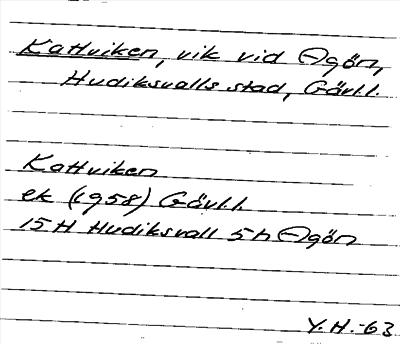 Kattviken, vik vid Agön,
Hudiksvalls stad, Gävl.l.
Kattviken
ek (1958) Gävl.l.
15H Hudiksvall 5h Agön
Y.H.-63